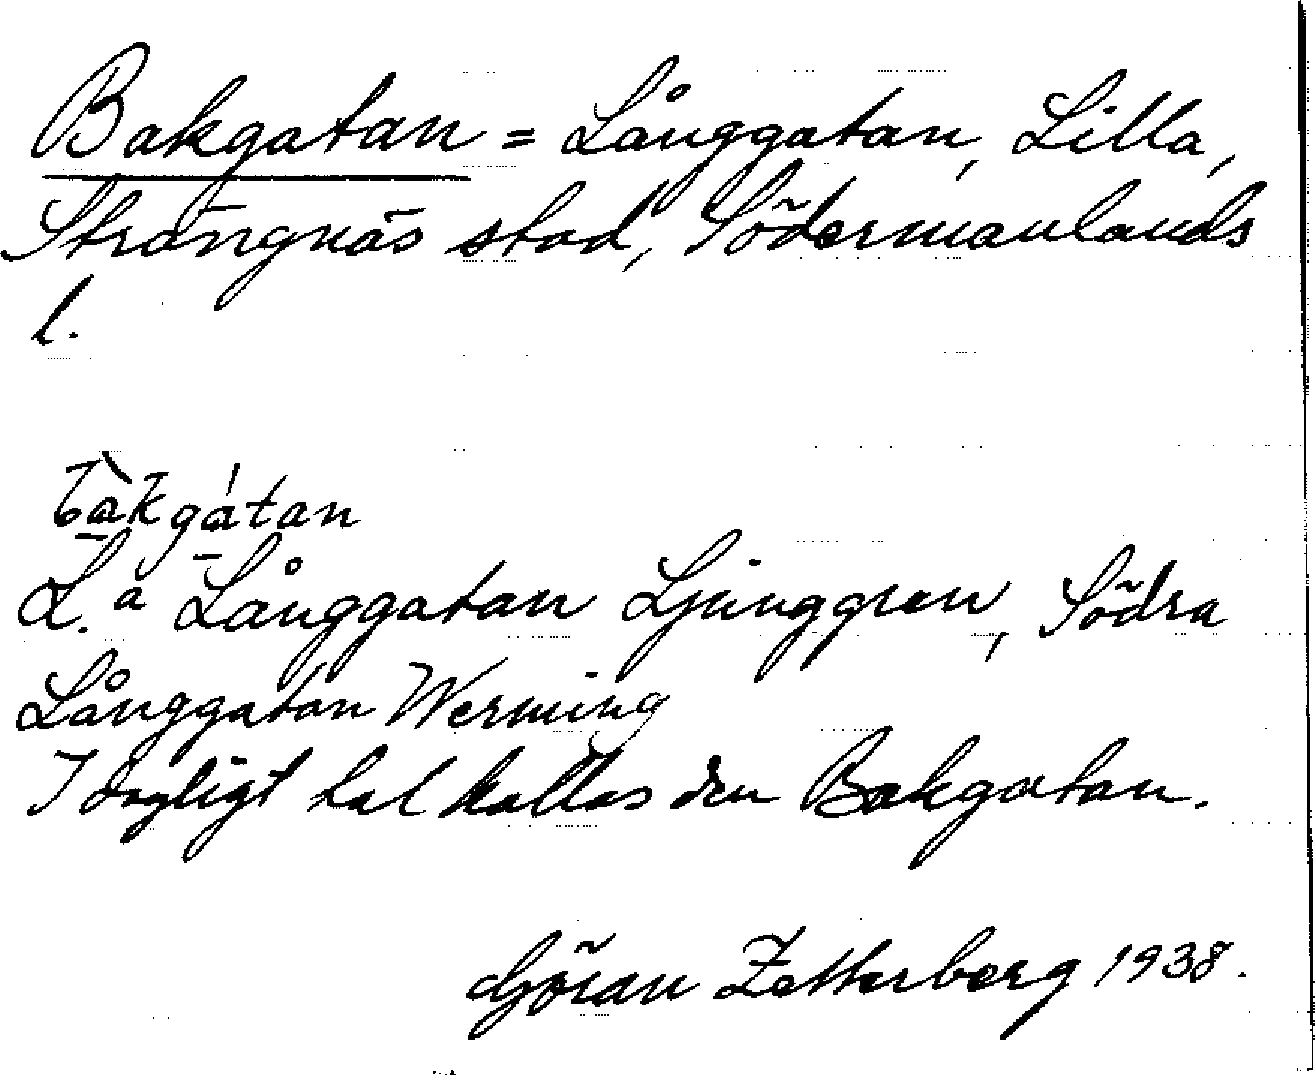 Bakgatan = Långgatan, Lilla,
Strängnäs stad, Södermanlands
l.
bàkgátan
L.a Långgatan Ljunggren, Södra
Långgatan Werming
I dagligt tal kallas den Bakgatan.
Göran Zetterberg 1938.